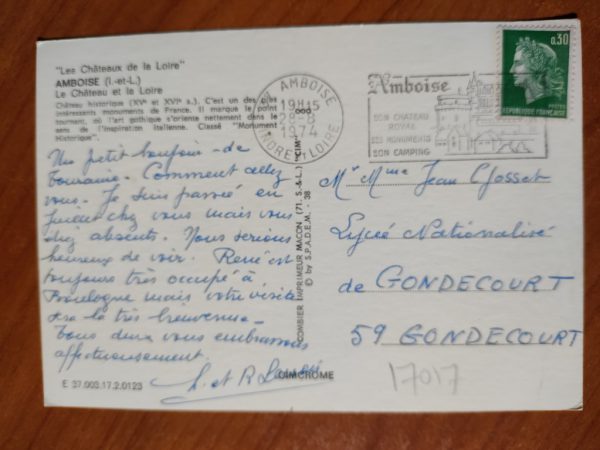 "Les Châteaux de la Loire"
AMBOISE (I.-et-L.)
Le Château et la Loire
Château historique (XVe et XVIe s.). C'est un des plus
intéressants monuments de France. Il marque le point
tournant, où l'art gothique s'oriente nettement dans le
sens de l'inspiration italienne. Classé "Monument
Historique".
Un petit bonjour de
Touraine. Comment allez
vous. Je suis passé en
Juillet chez vous mais vous
étiez absents. Nous serions
heureux de vous voir. René est
toujours très occupé à
Boulogne mais votre visite
sera la très bienvenue.
Tous deux vous embrassons
affectueusement.
et R
E 37.003.17.2.0123
COMBIER IMPRIMEUR MACON (71. S.-&-L.) "CIM"
© by S.P.A.D.E.M. 38
CIMCROME
AMBOISE
19H15
28-8
1974
INDRE ET LOIRE
Amboise
SON CHATEAU
ROYAL
SES MONUMENTS
SON CAMPING
0,30
POSTES
REPUBLIQUE FRANÇAISE
Mr Mme Jean Gosset
Lycée Nationalisé
de GONDECOURT
59 GONDECOURT
17017